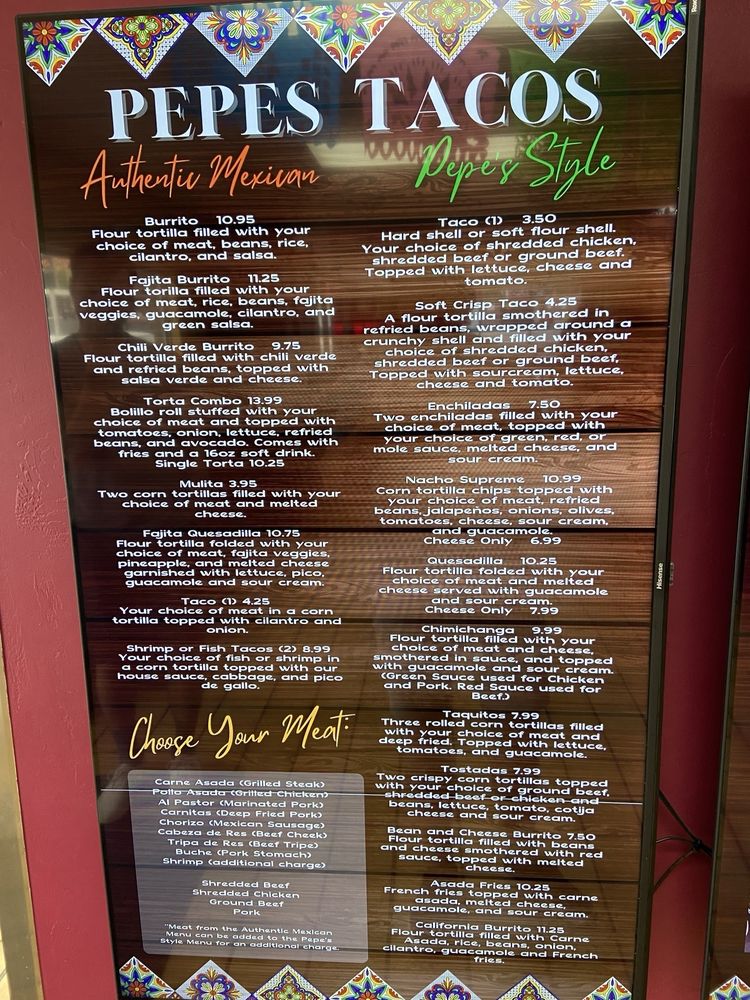 PEPES TACOS
Authentic Mexican
Burrito 10.95
Flour tortilla filled with your
choice of meat, beans, rice,
cilantro, and salsa.
Fajita Burrito 11.25
Flour torilla filled with your
choice of meat, rice, beans, fajita
veggies, guacamole, cilantro, and
green salsa.
Chili Verde Burrito 9.75
Flour tortilla filled with chili verde
and refried beans, topped with
salsa verde and cheese.
Torta Combo 13.99
Bolillo roll stuffed with your
choice of meat and topped with
tomatoes, onion, lettuce, refried
beans, and avocado. Comes with
fries and a 16oz soft drink.
Single Torta 10.25
Mulita 3.95
Two corn tortillas filled with your
choice of meat and melted
cheese.
Fajita Quesadilla 10.75
Flour tortilla folded with your
choice of meat, fajita veggies,
pineapple, and melted cheese
garnished with lettuce, pico,
guacamole and sour cream.
Taco (1) 4.25
Your choice of meat in a corn
tortilla topped with cilantro and
onion.
Shrimp or Fish Tacos (2) 8.99
Your choice of fish or shrimp in
a corn tortilla topped with our
house sauce, cabbage, and pico
de gallo.
Choose Your Meat:
Carne Asada (Grilled Steak)
Pollo Asada (Grilled Chicken)
Al Pastor (Marinated Pork)
Carnitas (Deep Fried Pork)
Chorizo (Mexican Sausage)
Cabeza de Res (Beef Cheek)
Tripa de Res (Beef Tripe)
Buche (Pork Stomach)
Shrimp (additional charge)
Shredded Beef
Shredded Chicken
Ground Beef
Pork
"Meat from the Authentic Mexican
Menu can be added to the Pepe's
Style Menu for an additional charge.
Pepe's Style
Taco (1) 3.50
Hard shell or soft flour shell.
Your choice of shredded chicken,
shredded beef or ground beef.
Topped with lettuce, cheese and
tomato.
Soft Crisp Taco 4.25
A flour tortilla smothered in
refried beans, wrapped around a
crunchy shell and filled with your
choice of shredded chicken,
shredded beef or ground beef,
Topped with sourcream, lettuce,
cheese and tomato.
Enchiladas 7.50
Two enchiladas filled with your
choice of meat, topped with
your choice of green, red, or
mole sauce, melted cheese, and
sour cream.
Nacho Supreme 10.99
Corn tortilla chips topped with
your choice of meat, refried
beans, jalapeños, onions, olives,
tomatoes, cheese, sour cream,
and guacamole.
Cheese Only 6.99
Quesadilla 10.25
Flour tortilla folded with your
choice of meat and melted
cheese served with guacamole
and sour cream.
Cheese Only 7.99
Chimichanga 9.99
Flour tortilla filled with your
choice of meat and cheese,
smothered in sauce, and topped
with guacamole and sour cream.
(Green Sauce used for Chicken
and Pork. Red Sauce used for
Beef.)
Taquitos 7.99
Three rolled corn tortillas filled
with your choice of meat and
deep fried. Topped with lettuce,
tomatoes, and guacamole.
Tostadas 7.99
Two crispy corn tortillas topped
with your choice of ground beef,
shredded beef or chicken and
beans, lettuce, tomato, cotija
cheese and sour cream.
Bean and Cheese Burrito 7.50
Flour tortilla filled with beans
and cheese smothered with red
sauce, topped with melted
cheese.
Asada Fries 10.25
French fries topped with carne
asada, melted cheese,
guacamole, and sour cream.
California Burrito 11.25
Flour tortilla filled with Carne
Asada, rice, beans, onion,
cilantro, guacamole and French
fries.
Hisense